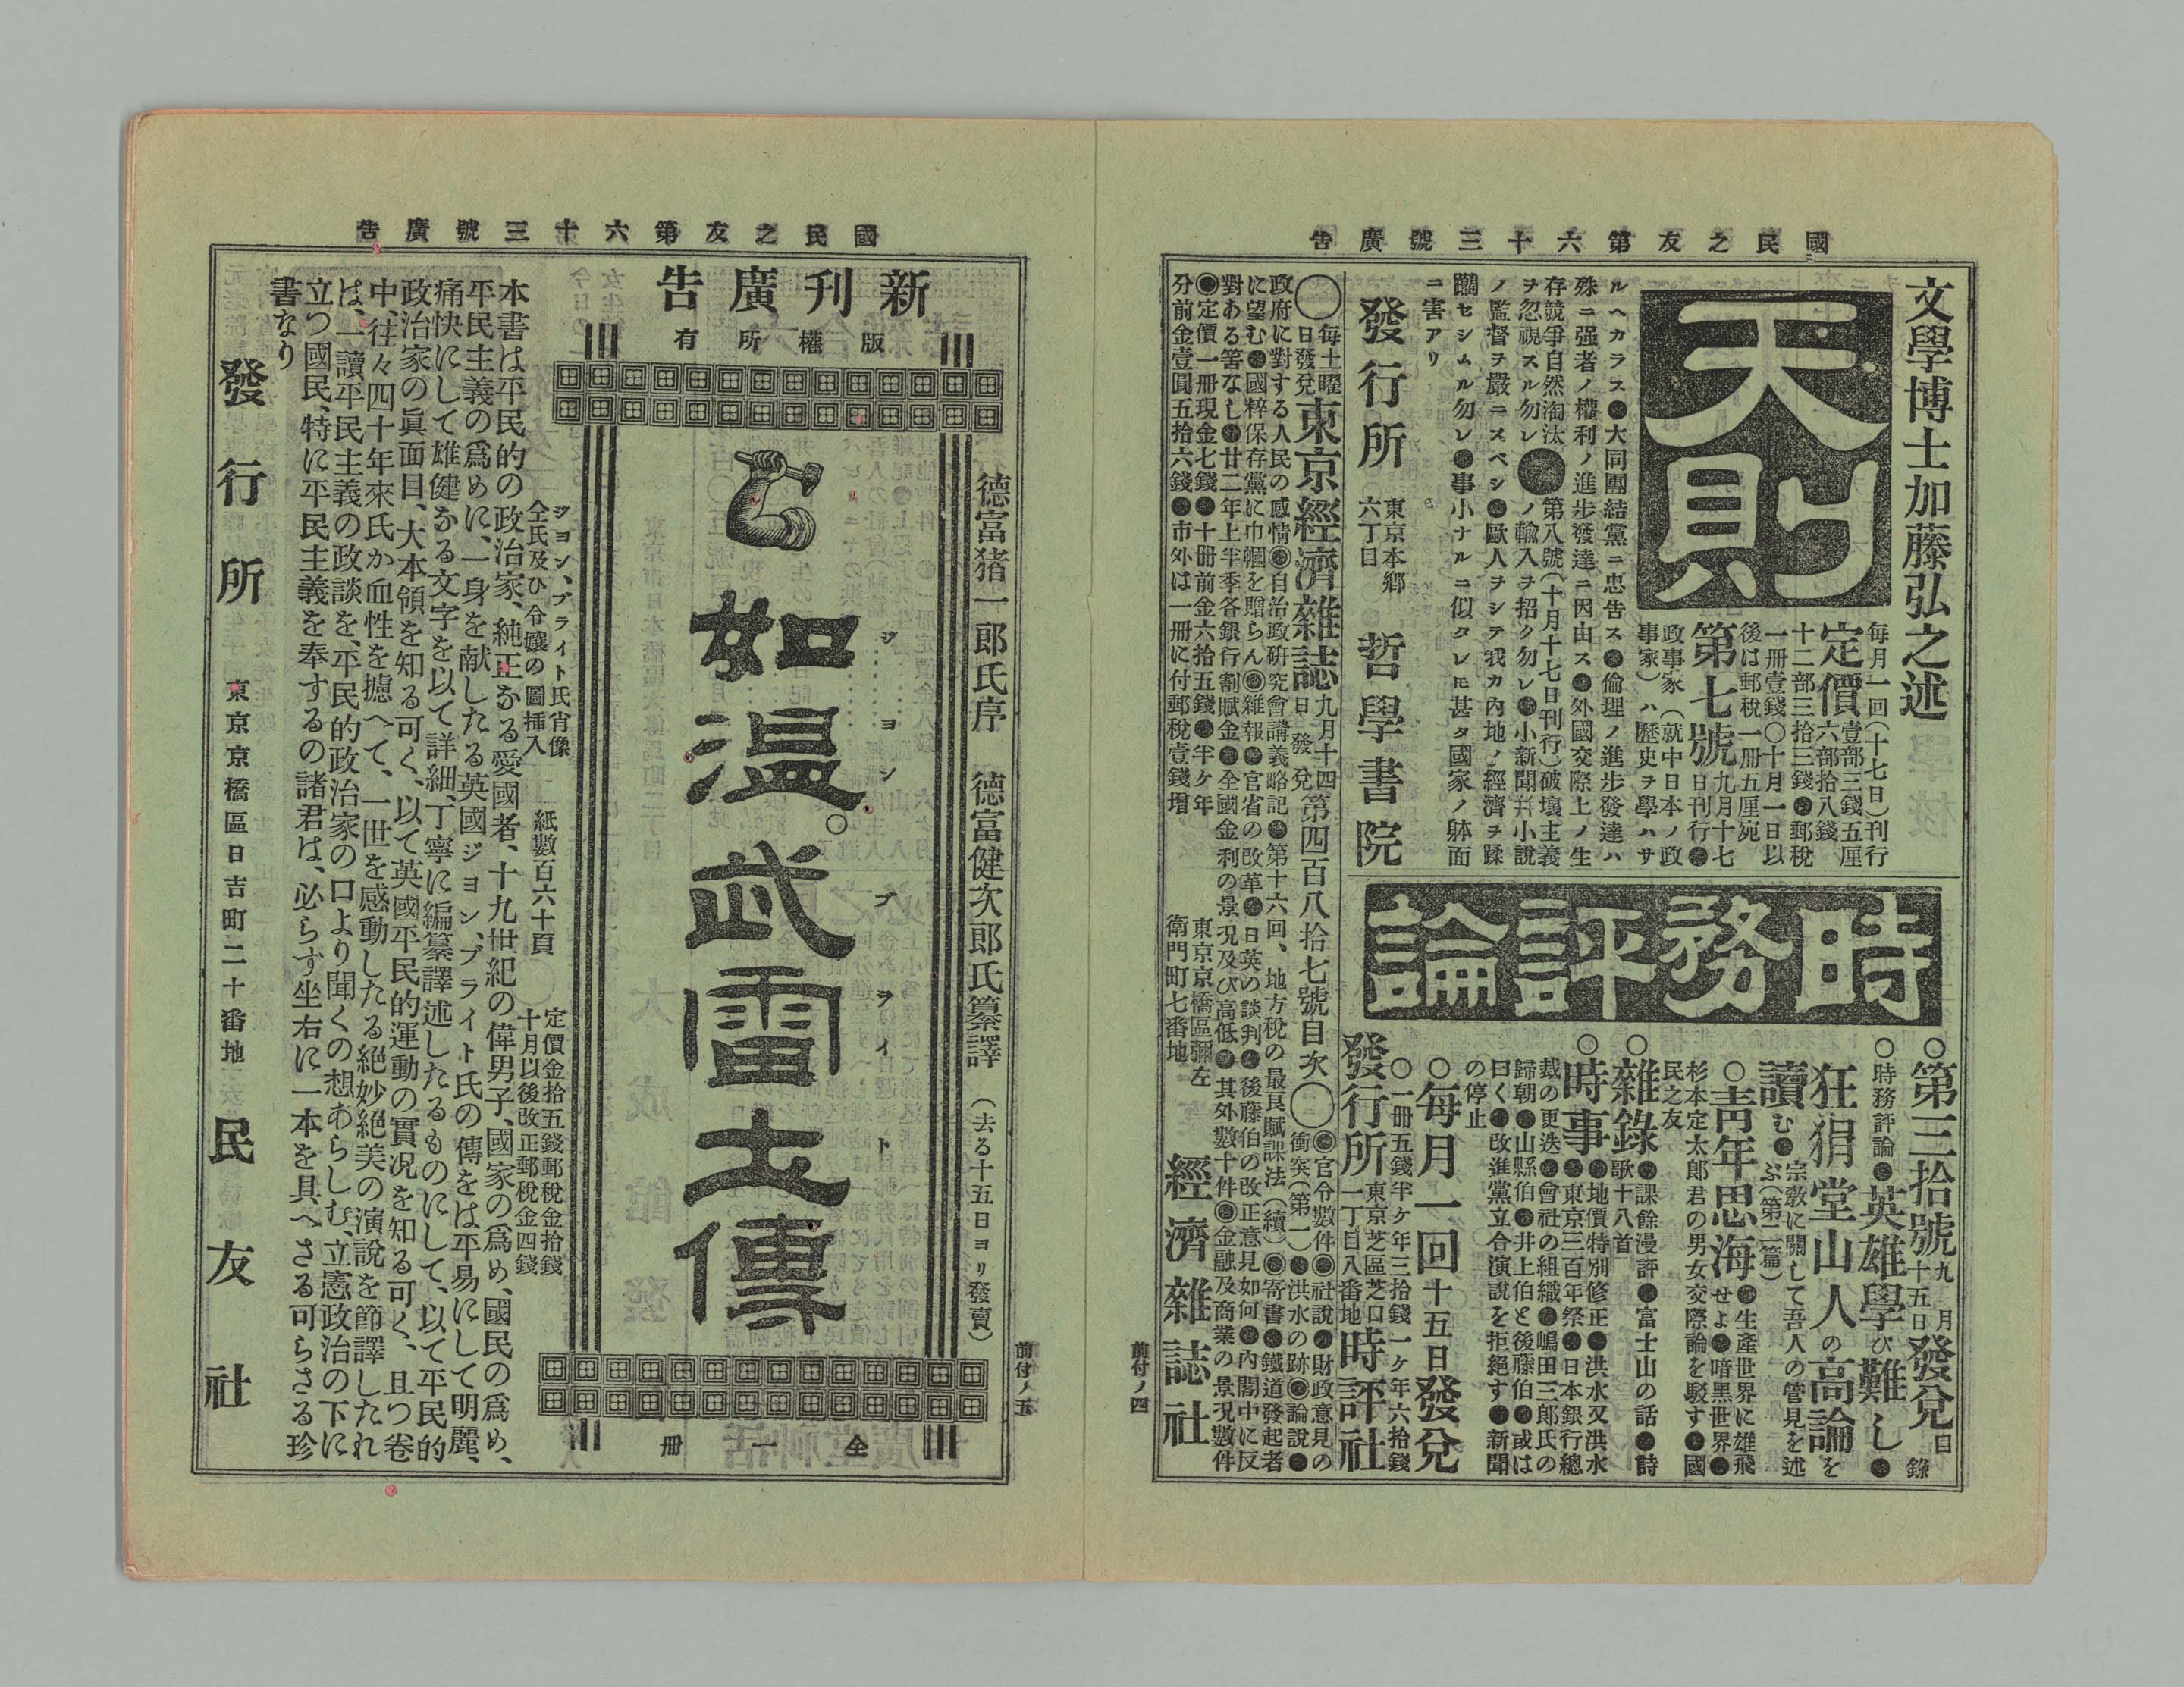 國民之友第六十三號廣告
文學博士加藤弘之述
天則
毎月一回(十七日)刊行
定價
壹部三錢五厘
六部拾八錢
十二部三拾三錢●郵稅
一冊壹錢○十月一日以
後は郵稅一冊五厘宛
第七號
九月十七
日刊行●
政事家(就中日本ノ政
事家)ハ歷史ヲ學ハサ
ルヘカラス●大同團結黨ニ忠告ス●倫理ノ進步發達ハ
殊ニ强者ノ權利ノ進步發達ニ因由ス●外國交際上ノ生
存競爭自然淘汰●第八號(十月十七日刊行)破壞主義
ノ輸入ヲ招ク勿レ●小新聞幷小說
ヲ忽視スル勿レ
ノ監督ヲ嚴ニスベシ●歐人ヲシテ我カ內地ノ經濟ヲ蹂
躪セシムル勿レ●事小ナルニ似タレ𪜈甚タ國家ノ躰面
ニ害アリ
發行所
東京本鄕
六丁目
哲學書院
時務評論
○第三拾號
九月
十五日
發兌
目錄
○時務評論●英雄學び難し●
狂狷堂山人の高論を
讀む●
宗敎に關して吾人の管見を述
ぶ(第二篇)
○靑年思海
●生產世界に雄飛
せよ●暗黑世界●
杉本定太郎君の男女交際論を駁す●國
民之友
○雜錄
●課餘漫評●富士山の話●詩
歌十八首
○時事
●地價特別修正●洪水又洪水
●東京三百年祭●日本銀行總
裁の更迭●會社の組織●嶋田三郎氏の
歸朝●山縣伯●井上伯と後藤伯●或は
曰く●改進黨立合演說を拒絕す●新聞
の停止
○每月一回十五日發兌
○一冊五錢半ケ年三拾錢一ケ年六拾錢
發行所
東京芝區芝口
一丁目八番地
時評社
○
每土曜
日發兌
東京經濟雜誌
九月十四
日發兌
第四百八拾七號目次○
◉官令數件◉社說●財政意見の
衝突(第一)●洪水の跡◉論說●
政府に對する人民の感情◉自治政硏究會講義略記●第十六回、地方稅の最良賦課法(續)◉寄書●鐵道發起者
に望む●國粹保存黨に巾幗を贈らん◉雜報●官省の改革●日英の談判●後藤伯の改正意見如何●內閣中に反
對ある筈なし●廿二年上半季各銀行割賦金●全國金利の景況及び高低●其外數十件◉金融及商業の景況數件
◉定價一冊現金七錢●十冊前金六拾五錢●半ケ年
分前金壹圓五拾六錢●市外は一冊に付郵稅壹錢增
東京京橋區彌左
衛門町七番地
經濟雜誌社
前付ノ四
國民之友第六十三號廣告
新刊廣告
版權所有
德富猪一郎氏序 德富健次郎氏纂譯(去る十五日ヨリ發賣)
ジヨン○ブライト
如温○武雷士傳
全一冊
ジヨン、ブライト氏肖像
全氏及ひ令孃の圖挿入
紙數百六十頁
定價金拾五錢郵稅金拾錢
十月以後改正郵稅金四錢
本書は平民的の政治家、純正なる愛國者、十九世紀の偉男子、國家の爲め、國民の爲め、
平民主義の爲めに、一身を献したる英國ジヨン、ブライト氏の傳をは平易にして明麗、
痛快にして雄健なる文字を以て詳細、丁寧に編纂譯述したるものにして、以て平民的
政治家の眞面目、大本領を知る可く、以て英國平民的運動の實况を知る可く、且つ卷
中、往々四十年來氏か血性を攄へて、一世を感動したる絕妙絕美の演說を節譯したれ
ば、一讀平民主義の政談を、平民的政治家の口より聞くの想あらしむ、立憲政治の下に
立つ國民、特に平民主義を奉するの諸君は、必らす坐右に一本を具へさる可らさる珍
書なり
發行所
東京京橋區日吉町二十番地
民友社
前付ノ五